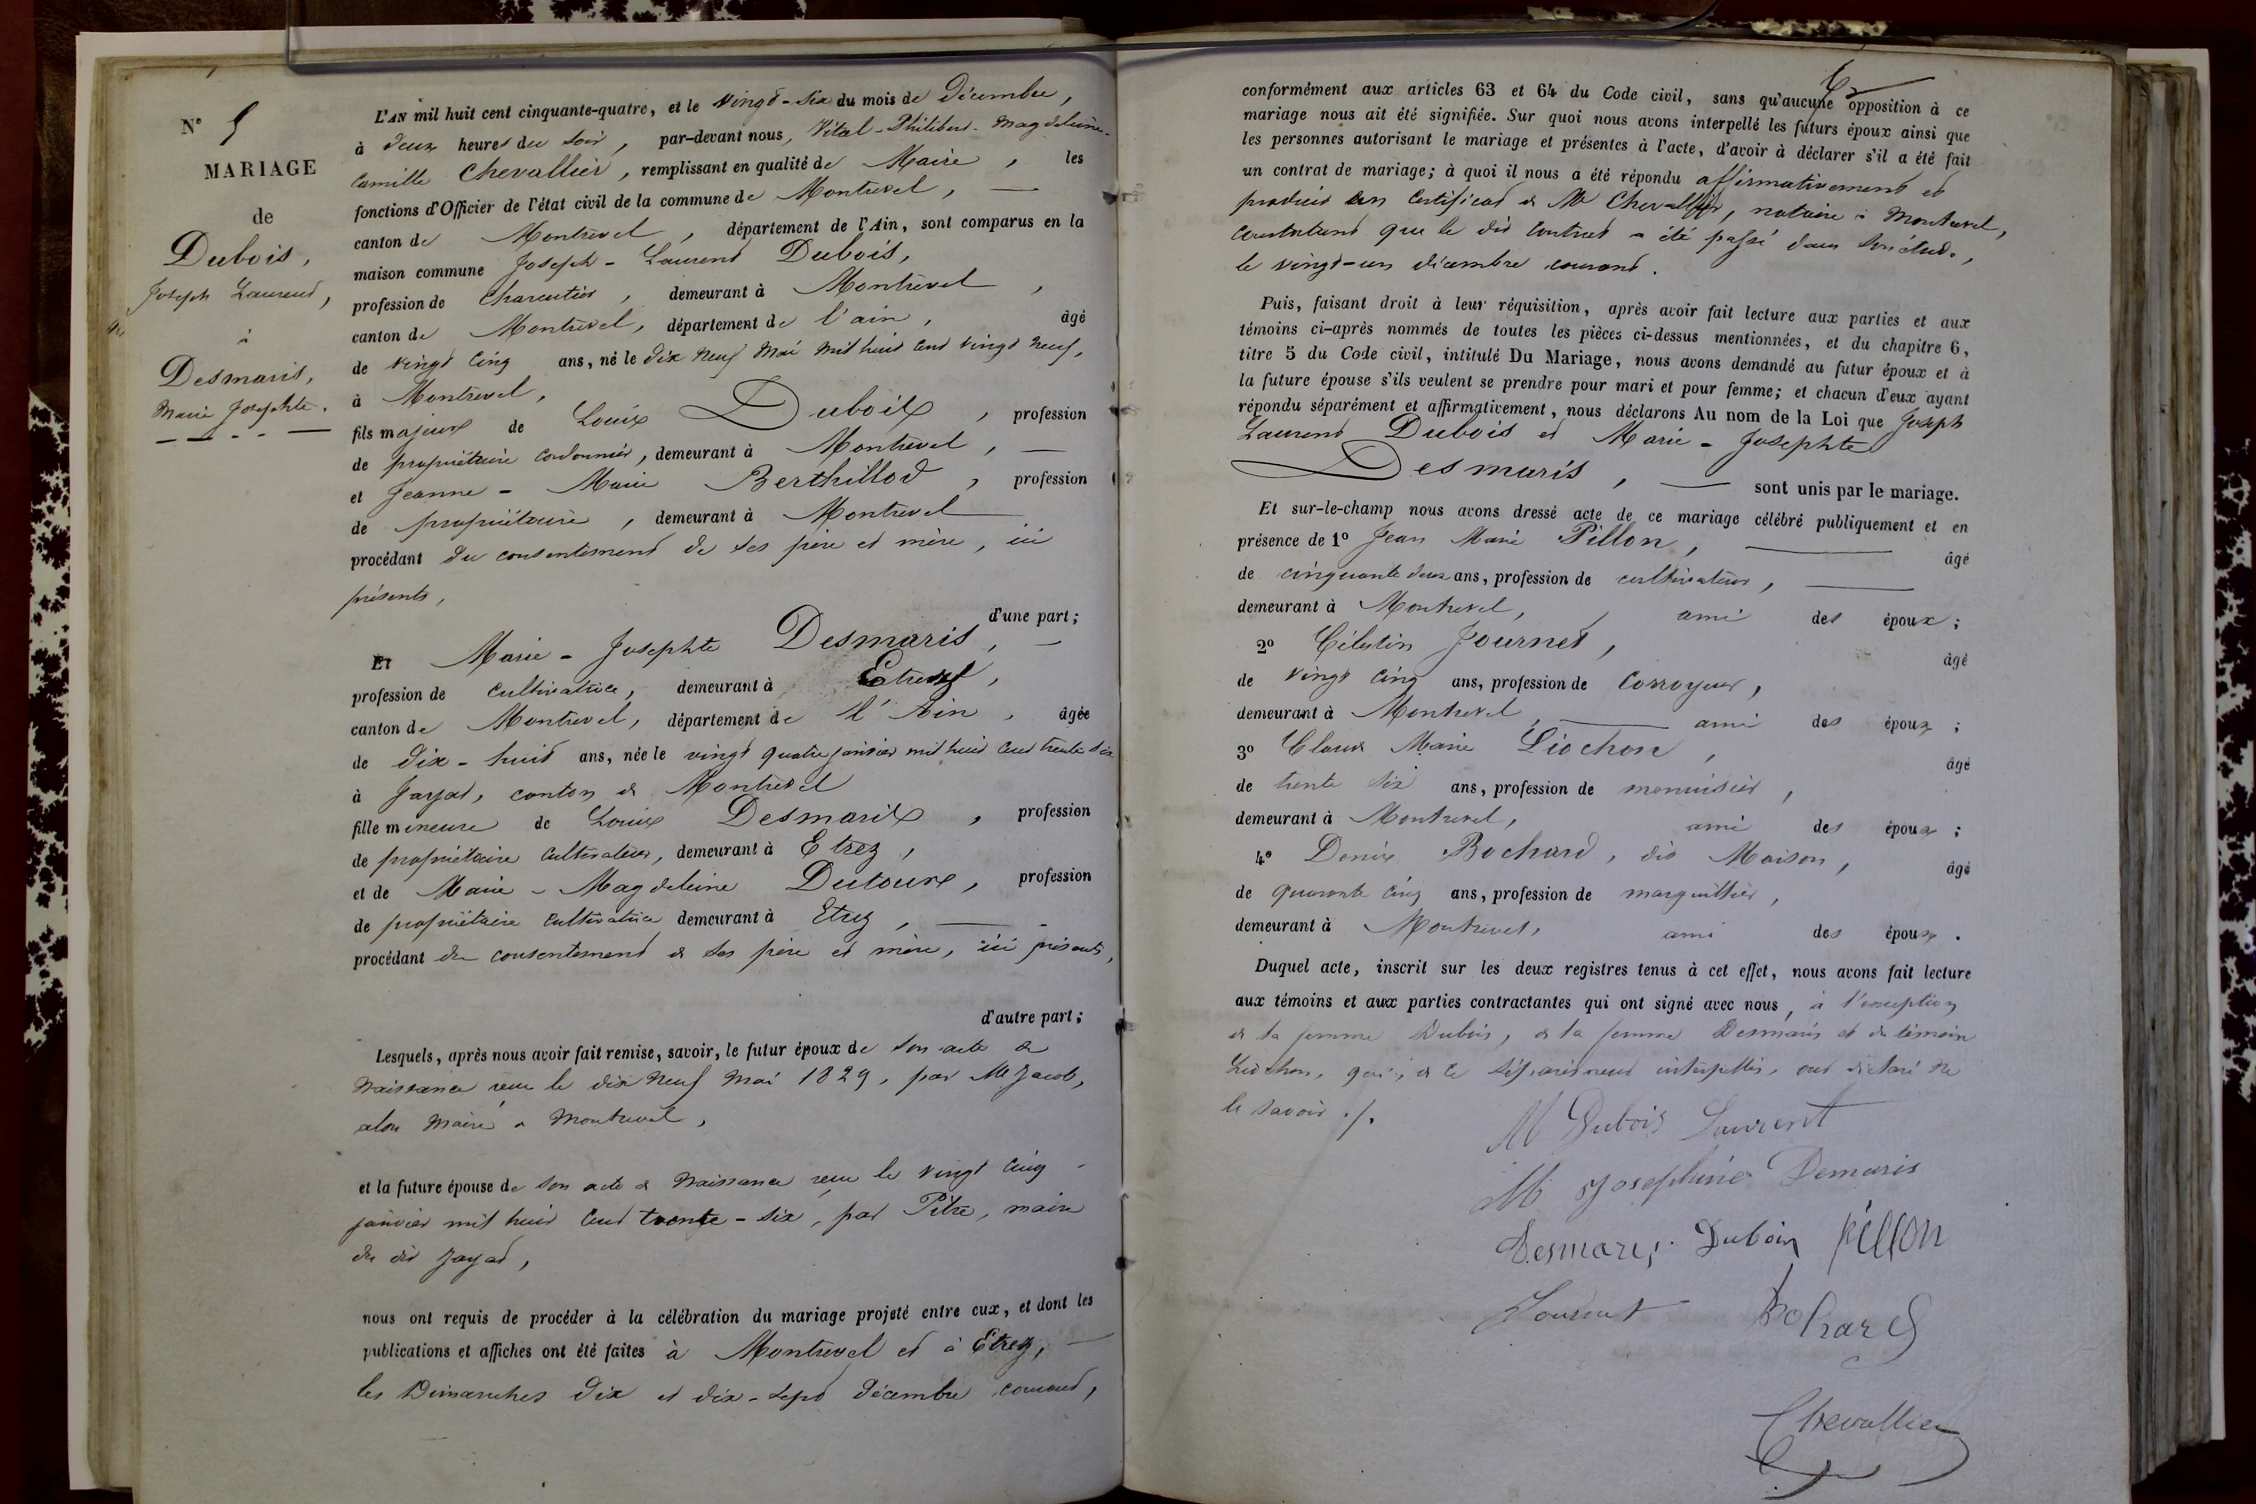 N° 5
MARIAGE
de
Dubois,
Joseph Laurent,
à
Desmaris,
Marie Josephte.
L'AN mil huit cent cinquante-quatre, et le vingt-six du mois de Décembre,
à deux heures du soir, par-devant nous, Vital-Philibert-Magdeleine-
Camille Chevallier, remplissant en qualité de Maire, les
fonctions d'Officier de l'état civil de la commune de Montrevel,
canton de Montrevel, département de l'Ain, sont comparus en la
maison commune Joseph-Laurent Dubois,
profession de Charcutier, demeurant à Montrevel,
canton de Montrevel, département de l'ain, âgé
de vingt cinq ans, né le dix neuf mai mil huit cent vingt neuf,
à Montrevel,
fils majeur de Louis Dubois, profession
de propriétaire cordonnier, demeurant à Montrevel,
et Jeanne-Marie Berthillod, profession
de propriétaire, demeurant à Montrevel
procédant du consentement de ses père et mère, ici
présents,
d'une part;
ET Marie-Josephte Desmaris,
profession de cultivatrice, demeurant à Etrez,
canton de Montrevel, département de l'Ain, âgée
de dix-huit ans, née le vingt quatre janvier mil huit cent trente six
à Jayat, canton de Montrevel
fille mineure de Louis Desmaris, profession
de propriétaire cultivateur, demeurant à Etrez,
et de Marie-Magdeleine Dutour, profession
de propriétaire cultivatrice demeurant à Etrez,
procédant du consentement de ses père et mère, ici présents,
d'autre part;
Lesquels, après nous avoir fait remise, savoir, le futur époux de son acte de
naissance reçu le dix neuf mai 1829, par Mr Jacob,
alors maire à Montrevel,
et la future épouse de son acte de naissance reçu le vingt cinq
janvier mil huit cent trente-six, par Pitre, maire
du dit Jayat,
nous ont requis de procéder à la célébration du mariage projeté entre eux, et dont les
publications et affiches ont été faites à Montrevel et à Etrez,
les Dimanches dix et dix-sept décembre courant,
conformément aux articles 63 et 64 du Code civil, sans qu'aucune opposition à ce
mariage nous ait été signifiée. Sur quoi nous avons interpellé les futurs époux ainsi que
les personnes autorisant le mariage et présentes à l'acte, d'avoir à déclarer s'il a été fait
un contrat de mariage; à quoi il nous a été répondu affirmativement et
produit un certificat de Me Chevallier, notaire à Montrevel,
constatant que le dit contrat a été passé dans son étude,
le vingt-un décembre courant.
Puis, faisant droit à leur réquisition, après avoir fait lecture aux parties et aux
témoins ci-après nommés de toutes les pièces ci-dessus mentionnées, et du chapitre 6,
titre 5 du Code civil, intitulé Du Mariage, nous avons demandé au futur époux et à
la future épouse s'ils veulent se prendre pour mari et pour femme; et chacun d'eux ayant
répondu séparément et affirmativement, nous déclarons Au nom de la Loi que Joseph
Laurent Dubois et Marie-Josephte
Desmaris, sont unis par le mariage.
Et sur-le-champ nous avons dressé acte de ce mariage célébré publiquement et en
présence de 1° Jean Marie Pillon, âgé
de cinquante deux ans, profession de cultivateur,
demeurant à Montrevel, ami des époux;
2° Célestin Journet, âgé
de vingt cinq ans, profession de corroyeur,
demeurant à Montrevel, ami des époux;
3° Claude Marie Liochon, âgé
de trente six ans, profession de menuisier,
demeurant à Montrevel, ami des époux;
4° Denis Bochard, dit Maison, âgé
de quarante cinq ans, profession de marguillier,
demeurant à Montrevel, ami des époux.
Duquel acte, inscrit sur les deux registres tenus à cet effet, nous avons fait lecture
aux témoins et aux parties contractantes qui ont signé avec nous, à l'exception
de la femme Dubois, de la femme Desmaris et du témoin
Liochon, qui, de ce séparément interpellés, ont déclaré ne
le savoir ./.
M Dubois Laurent
M Josephine Demaris
Desmaris Dubois pillon
Bochard
Chevallier